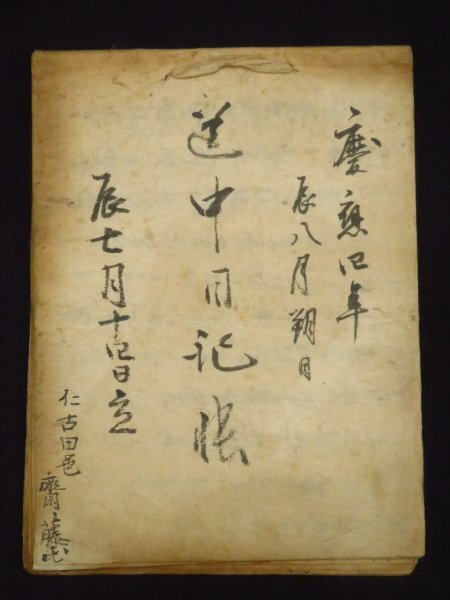 慶應四年
辰八月朔日
道中日記帳
辰七月十四日立
仁古田邑
齋藤氏